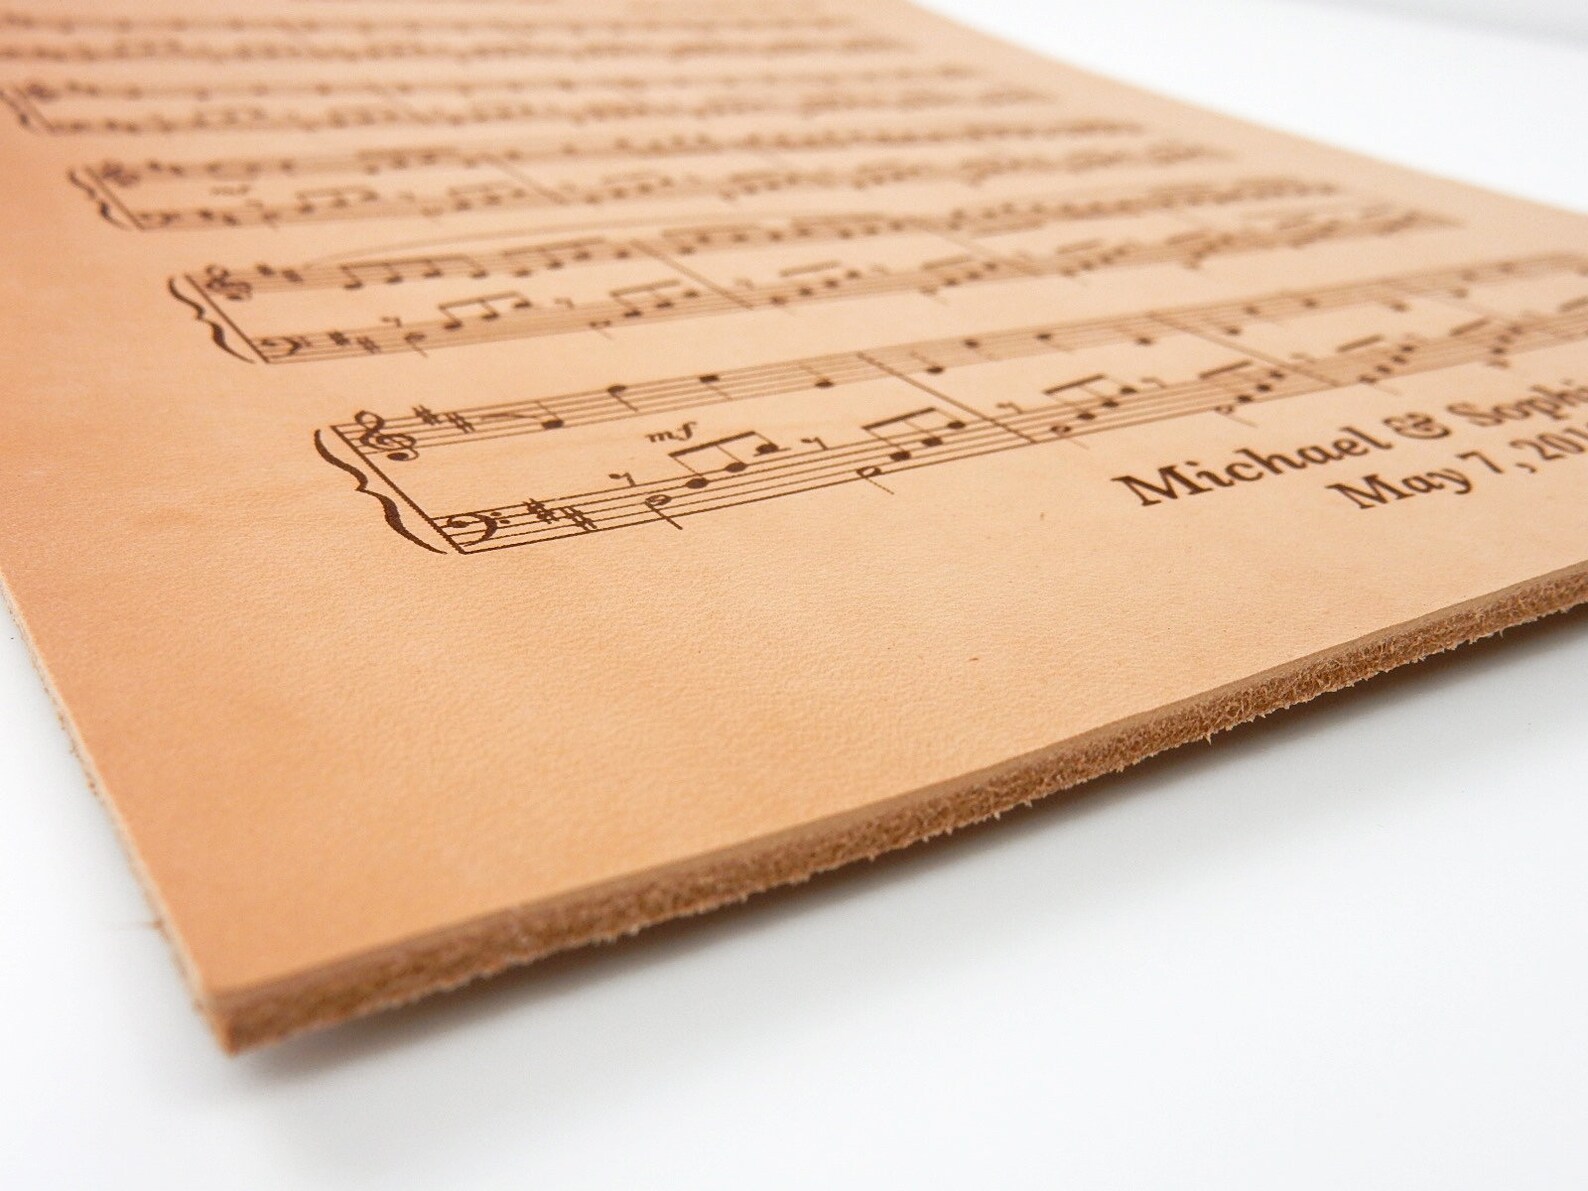 mf
Michael & Sophi
May 7, 201